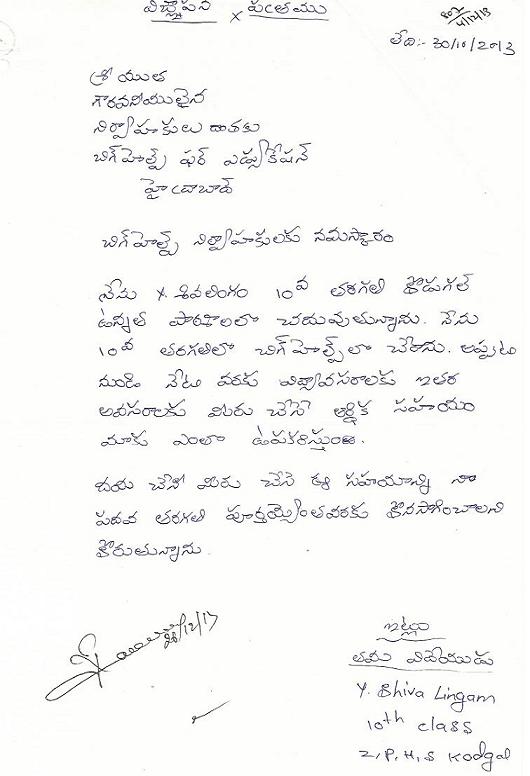 విజ్ఞాపన పత్రము
4/12/13
తేది:- 30/10/2013
శ్రీయుత
గౌరవనీయులైన
నిర్వాహకులు దాతలకు
బిగ్ హెల్ప్ ఫర్ ఎడ్యుకేషన్
హైదరాబాద్
బిగ్ హెల్ప్ నిర్వాహకులకు నమస్కారం
నేను Y. శివలింగం 10వ తరగతి కొడుగల్
ఉన్నత పాఠశాలలో చదువుతున్నాను. నేను
10వ తరగతిలో బిగ్ హెల్ప్ లో చేరాను. అప్పటి
నుండి నేటి వరకు విద్యావసరాలకు ఇతర
అవసరాలకు మీరు చేసే ఆర్థిక సహాయం
మాకు ఎంతో ఉపకరిస్తుంది.
దయ చేసి మీరు చేసే ఈ సహాయాన్ని నా
పదవ తరగతి పూర్తయ్యేంతవరకు కొనసాగించాలని
కోరుతున్నాను.
28/12/13
ఇట్లు
తమ విధేయుడు
Y. Shiva Lingam
10th class
Z.P.H.S Kodgal